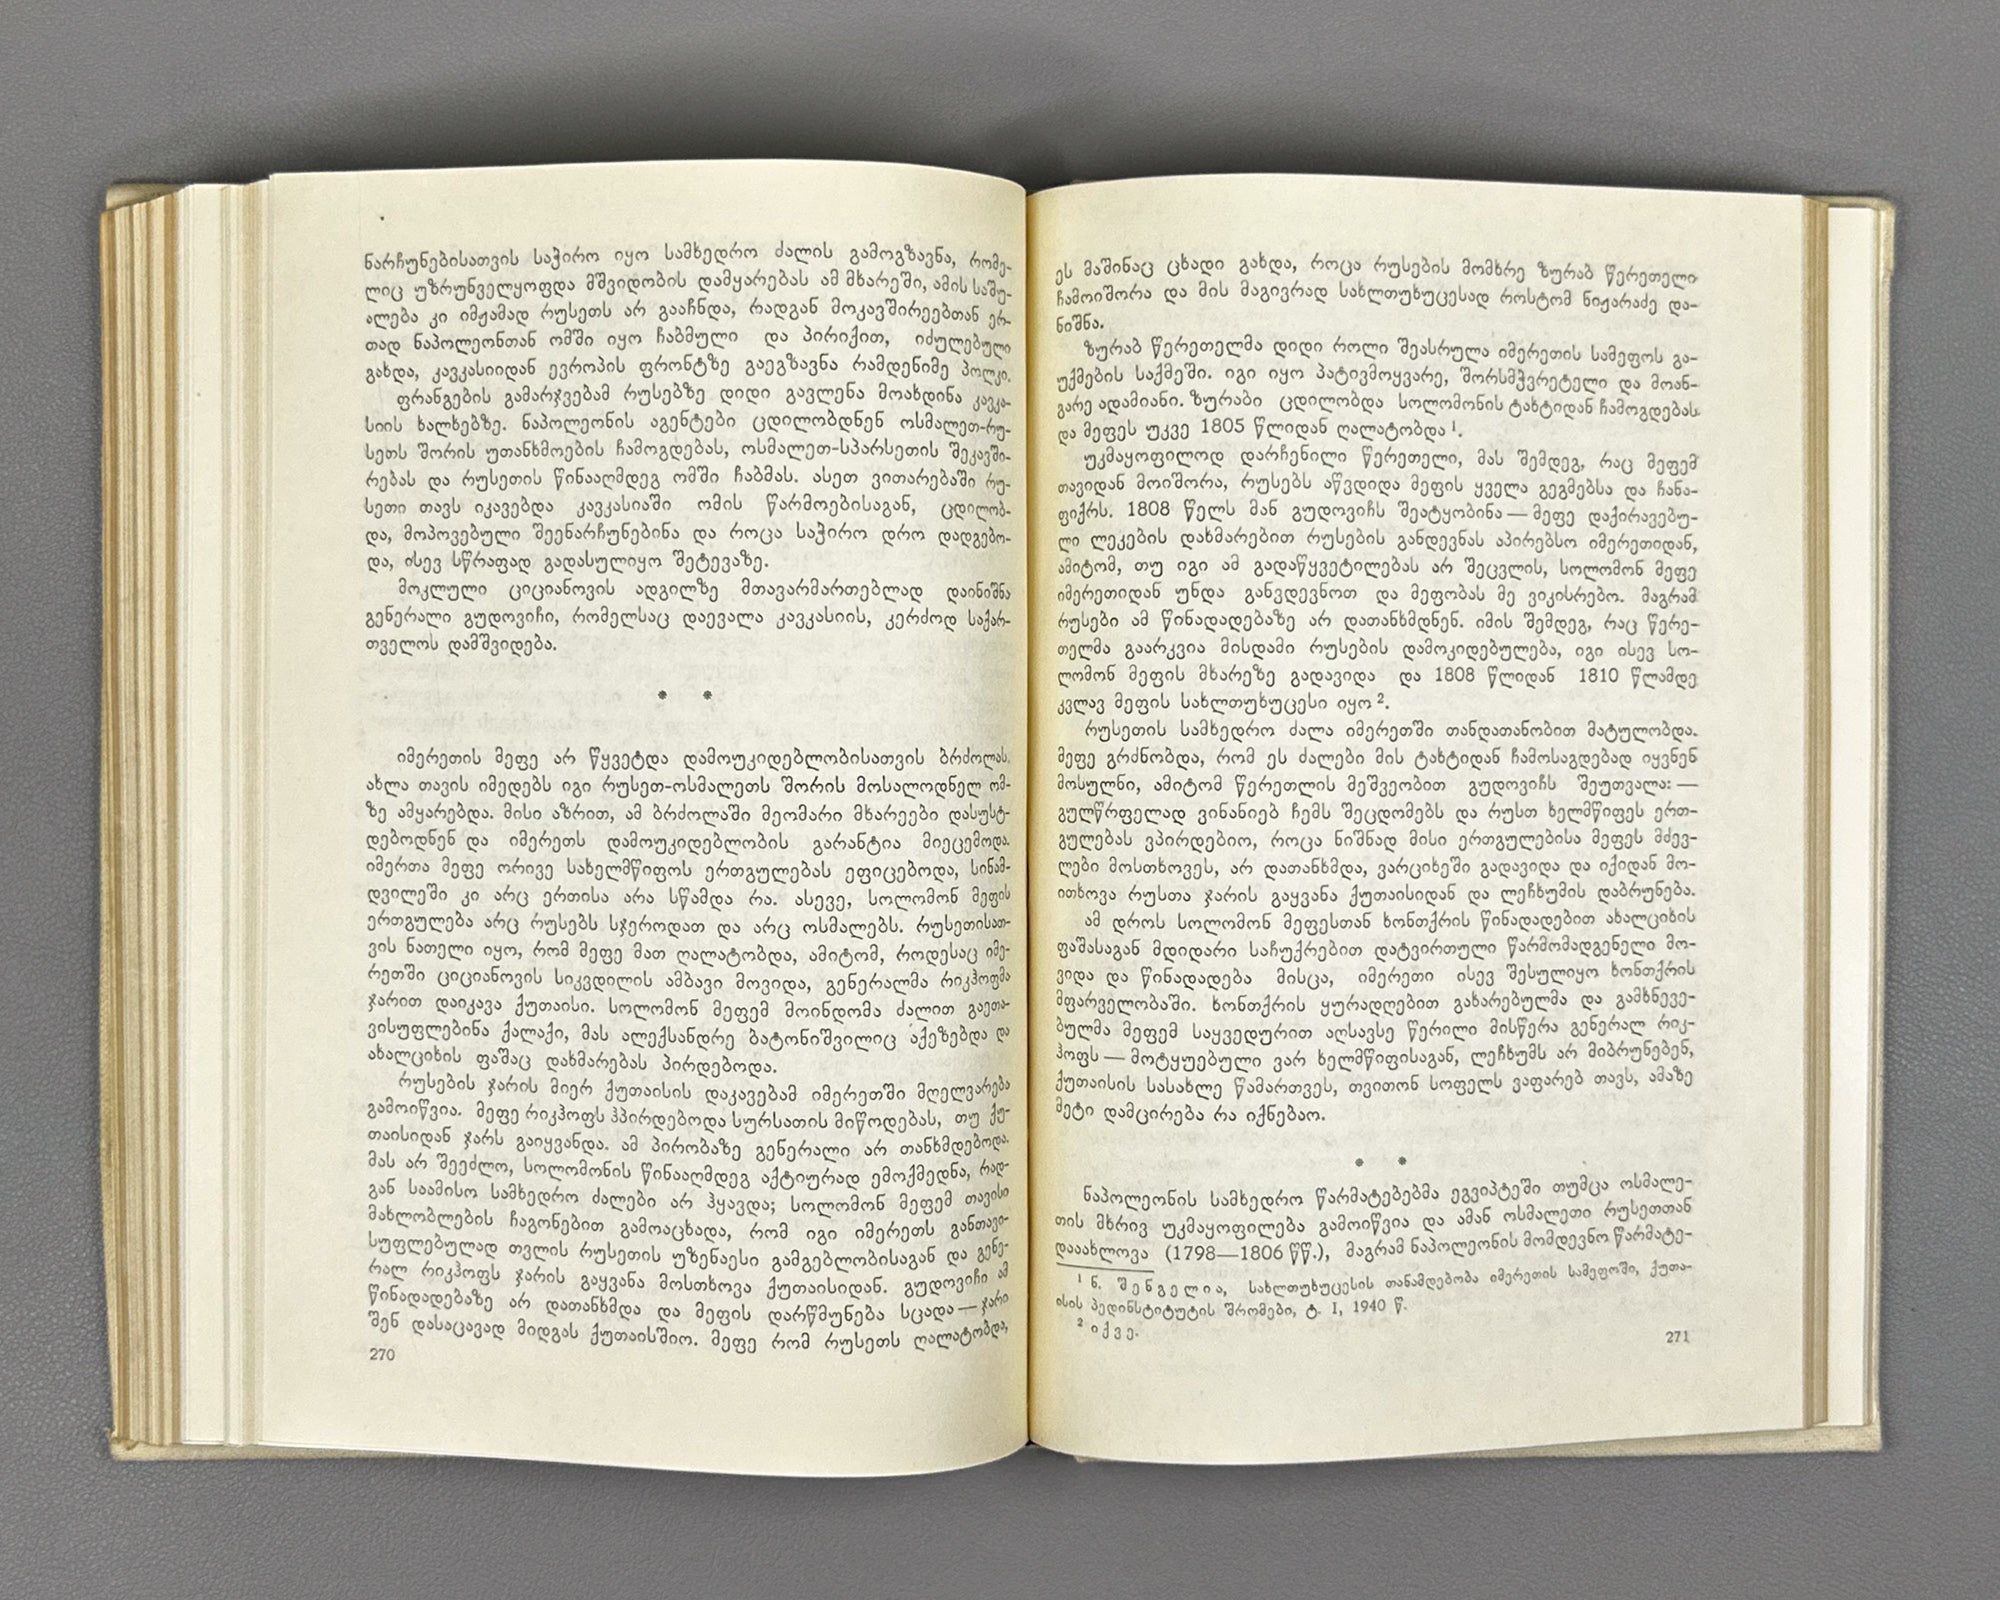 ნარჩუნებისათვის საჭირო იყო სამხედრო ძალის გამოგზავნა, რომე-
ლიც უზრუნველყოფდა მშვიდობის დამყარებას ამ მხარეში, ამის საშუ-
ალება კი იმჟამად რუსეთს არ გააჩნდა, რადგან მოკავშირეებთან ერ-
თად ნაპოლეონთან ომში იყო ჩაბმული და პირიქით, იძულებული
გახდა, კავკასიიდან ევროპის ფრონტზე გაეგზავნა რამდენიმე პოლკი.
ფრანგების გამარჯვებამ რუსებზე დიდი გავლენა მოახდინა კავკა-
სიის ხალხებზე. ნაპოლეონის აგენტები ცდილობდნენ ოსმალეთ-რუ-
სეთს შორის უთანხმოების ჩამოგდებას, ოსმალეთ-სპარსეთის შეკავში-
რებას და რუსეთის წინააღმდეგ ომში ჩაბმას. ასეთ ვითარებაში რუ-
სეთი თავს იკავებდა კავკასიაში ომის წარმოებისაგან, ცდილობ-
და, მოპოვებული შეენარჩუნებინა და როცა საჭირო დრო დადგებო-
და, ისევ სწრაფად გადასულიყო შეტევაზე.
მოკლული ციციანოვის ადგილზე მთავარმართებლად დაინიშნა
გენერალი გუდოვიჩი, რომელსაც დაევალა კავკასიის, კერძოდ საქარ-
თველოს დამშვიდება.
* *
იმერეთის მეფე არ წყვეტდა დამოუკიდებლობისათვის ბრძოლას.
ახლა თავის იმედებს იგი რუსეთ-ოსმალეთს შორის მოსალოდნელ ომ-
ზე ამყარებდა. მისი აზრით, ამ ბრძოლაში მეომარი მხარეები დასუსტ-
დებოდნენ და იმერეთს დამოუკიდებლობის გარანტია მიეცემოდა.
იმერთა მეფე ორივე სახელმწიფოს ერთგულებას ეფიცებოდა, სინამ-
დვილეში კი არც ერთისა არა სწამდა რა. ასევე, სოლომონ მეფის
ერთგულება არც რუსებს სჯეროდათ და არც ოსმალებს. რუსეთისათ-
ვის ნათელი იყო, რომ მეფე მათ ღალატობდა, ამიტომ, როდესაც იმე-
რეთში ციციანოვის სიკვდილის ამბავი მოვიდა, გენერალმა რიკჰოფმა
ჯარით დაიკავა ქუთაისი. სოლომონ მეფემ მოინდომა ძალით გაეთა-
ვისუფლებინა ქალაქი, მას ალექსანდრე ბატონიშვილიც აქეზებდა და
ახალციხის ფაშაც დახმარებას პირდებოდა.
რუსების ჯარის მიერ ქუთაისის დაკავებამ იმერეთში მღელვარება
გამოიწვია. მეფე რიკჰოფს ჰპირდებოდა სურსათის მიწოდებას, თუ ქუ-
თაისიდან ჯარს გაიყვანდა. ამ პირობაზე გენერალი არ თანხმდებოდა.
მას არ შეეძლო, სოლომონის წინააღმდეგ აქტიურად ემოქმედნა, რად-
გან საამისო სამხედრო ძალები არ ჰყავდა; სოლომონ მეფემ თავისი
მახლობლების ჩაგონებით გამოაცხადა, რომ იგი იმერეთს განთავი-
სუფლებულად თვლის რუსეთის უზენაესი გამგებლობისაგან და გენე-
რალ რიკჰოფს ჯარის გაყვანა მოსთხოვა ქუთაისიდან. გუდოვიჩი ამ
წინადადებაზე არ დათანხმდა და მეფის დარწმუნება სცადა — ჯარი
შენ დასაცავად მიდგას ქუთაისშიო. მეფე რომ რუსეთს ღალატობდა,
270
ეს მაშინაც ცხადი გახდა, როცა რუსების მომხრე ზურაბ წერეთელი
ჩამოიშორა და მის მაგივრად სახლთუხუცესად როსტომ ნიჟარაძე და-
ნიშნა.
ზურაბ წერეთელმა დიდი როლი შეასრულა იმერეთის სამეფოს გა-
უქმების საქმეში. იგი იყო პატივმოყვარე, შორსმჭვრეტელი და მოან-
გარე ადამიანი. ზურაბი ცდილობდა სოლომონის ტახტიდან ჩამოგდებას
და მეფეს უკვე 1805 წლიდან ღალატობდა ¹.
უკმაყოფილოდ დარჩენილი წერეთელი, მას შემდეგ, რაც მეფემ
თავიდან მოიშორა, რუსებს აწვდიდა მეფის ყველა გეგმებსა და ჩანა-
ფიქრს. 1808 წელს მან გუდოვიჩს შეატყობინა — მეფე დაქირავებუ-
ლი ლეკების დახმარებით რუსების განდევნას აპირებსო იმერეთიდან,
ამიტომ, თუ იგი ამ გადაწყვეტილებას არ შეცვლის, სოლომონ მეფე
იმერეთიდან უნდა განვდევნოთ და მეფობას მე ვიკისრებო. მაგრამ
რუსები ამ წინადადებაზე არ დათანხმდნენ. იმის შემდეგ, რაც წერე-
თელმა გაარკვია მისდამი რუსების დამოკიდებულება, იგი ისევ სო-
ლომონ მეფის მხარეზე გადავიდა და 1808 წლიდან 1810 წლამდე
კვლავ მეფის სახლთუხუცესი იყო ².
რუსეთის სამხედრო ძალა იმერეთში თანდათანობით მატულობდა.
მეფე გრძნობდა, რომ ეს ძალები მის ტახტიდან ჩამოსაგდებად იყვნენ
მოსულნი, ამიტომ წერეთლის მეშვეობით გუდოვიჩს შეუთვალა: —
გულწრფელად ვინანიებ ჩემს შეცდომებს და რუსთ ხელმწიფეს ერთ-
გულებას ვპირდებიო, როცა ნიშნად მისი ერთგულებისა მეფეს მძევ-
ლები მოსთხოვეს, არ დათანხმდა, ვარციხეში გადავიდა და იქიდან მო-
ითხოვა რუსთა ჯარის გაყვანა ქუთაისიდან და ლეჩხუმის დაბრუნება.
ამ დროს სოლომონ მეფესთან ხონთქრის წინადადებით ახალციხის
ფაშასაგან მდიდარი საჩუქრებით დატვირთული წარმომადგენელი მო-
ვიდა და წინადადება მისცა, იმერეთი ისევ შესულიყო ხონთქრის
მფარველობაში. ხონთქრის ყურადღებით გახარებულმა და გამხნევე-
ბულმა მეფემ საყვედურით აღსავსე წერილი მისწერა გენერალ რიკ-
ჰოფს — მოტყუებული ვარ ხელმწიფისაგან, ლეჩხუმს არ მიბრუნებენ,
ქუთაისის სასახლე წამართვეს, თვითონ სოფელს ვაფარებ თავს, ამაზე
მეტი დამცირება რა იქნებაო.
* *
ნაპოლეონის სამხედრო წარმატებებმა ეგვიპტეში თუმცა ოსმალე-
თის მხრივ უკმაყოფილება გამოიწვია და ამან ოსმალეთი რუსეთთან
დააახლოვა (1798—1806 წწ.), მაგრამ ნაპოლეონის მომდევნო წარმატე-
¹ ნ. შენგელია, სახლთუხუცესის თანამდებობა იმერეთის სამეფოში, ქუთა-
ისის პედინსტიტუტის შრომები, ტ. I, 1940 წ.
² იქვე.
271